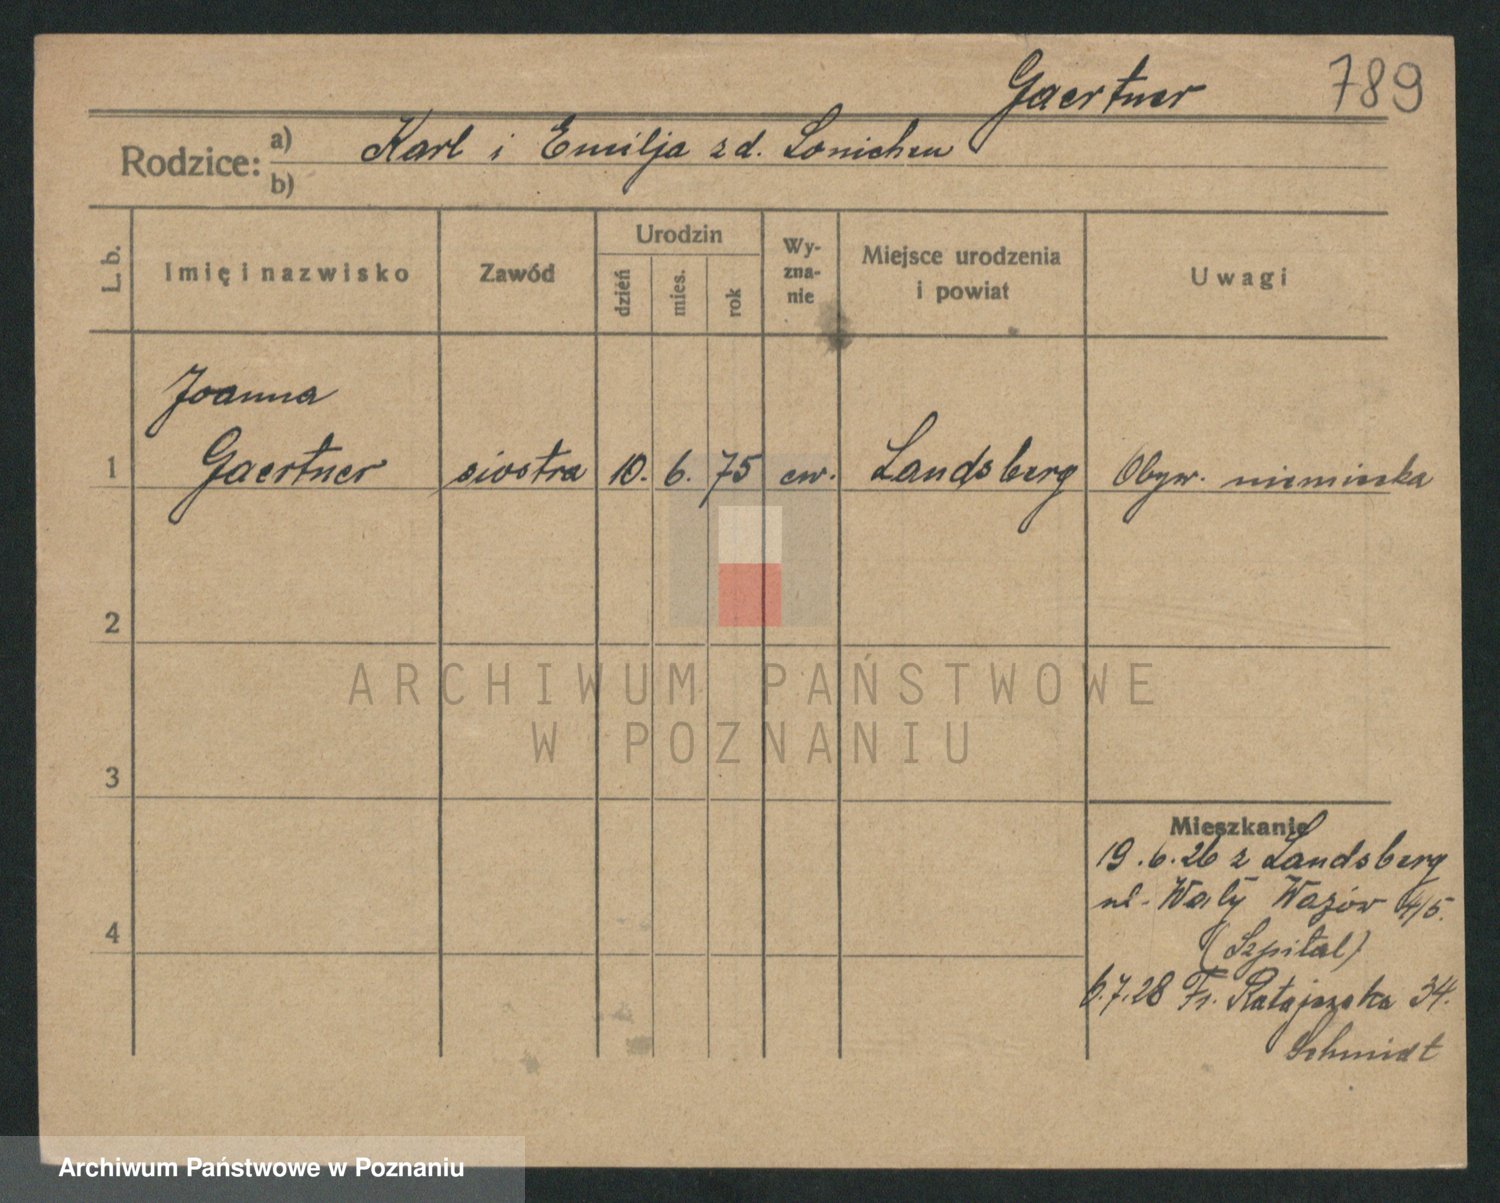 Gaertner 789
Rodzice: a) Karl i Emilja z d. Lonichen
b)
L. b.
Imię i nazwisko
Zawód
Urodzin
dzień
mies.
rok
Wy-
zna-
nie
Miejsce urodzenia
i powiat
Uwagi
Joanna
1 Gaertner siostra 10. 6. 75 ew. Landsberg Obyw. niemiecka
2
ARCHIWUM PAŃSTWOWE
W POZNANIU
3
Mieszkanie
19.6.26 z Landsberg
ul. Wały Wazów 4/5.
4
(Szpital)
6.7.28 Fr. Ratajczaka 34.
Schmidt
Archiwum Państwowe w Poznaniu